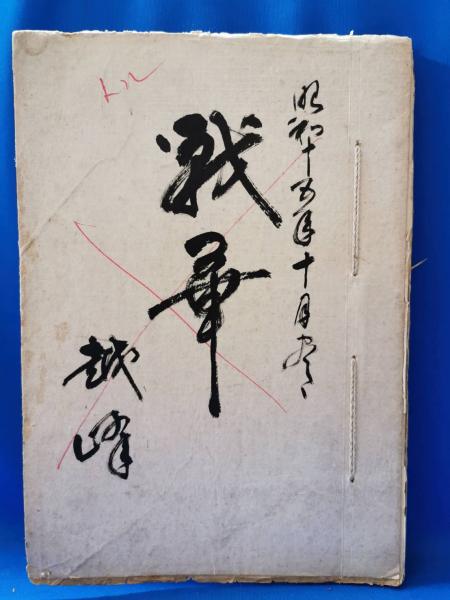 昭和十五年十月
戦華
越峰